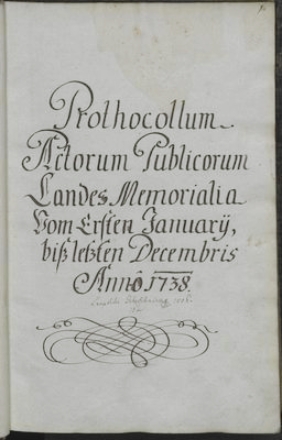 Prothocollum
Actorum Publicorum
Landes Memorialia
Vom Ersten Januarÿ,
biß letzten Decembris
Annô 1738.